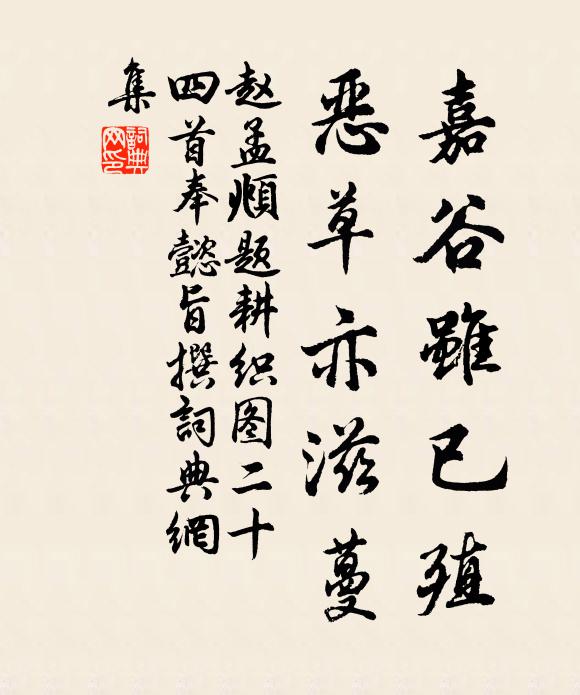 嘉谷雖已殖
恶草亦滋蔓
赵孟頫题耕织图二十
四首奉懿旨撰詞典網
集
詞典網印